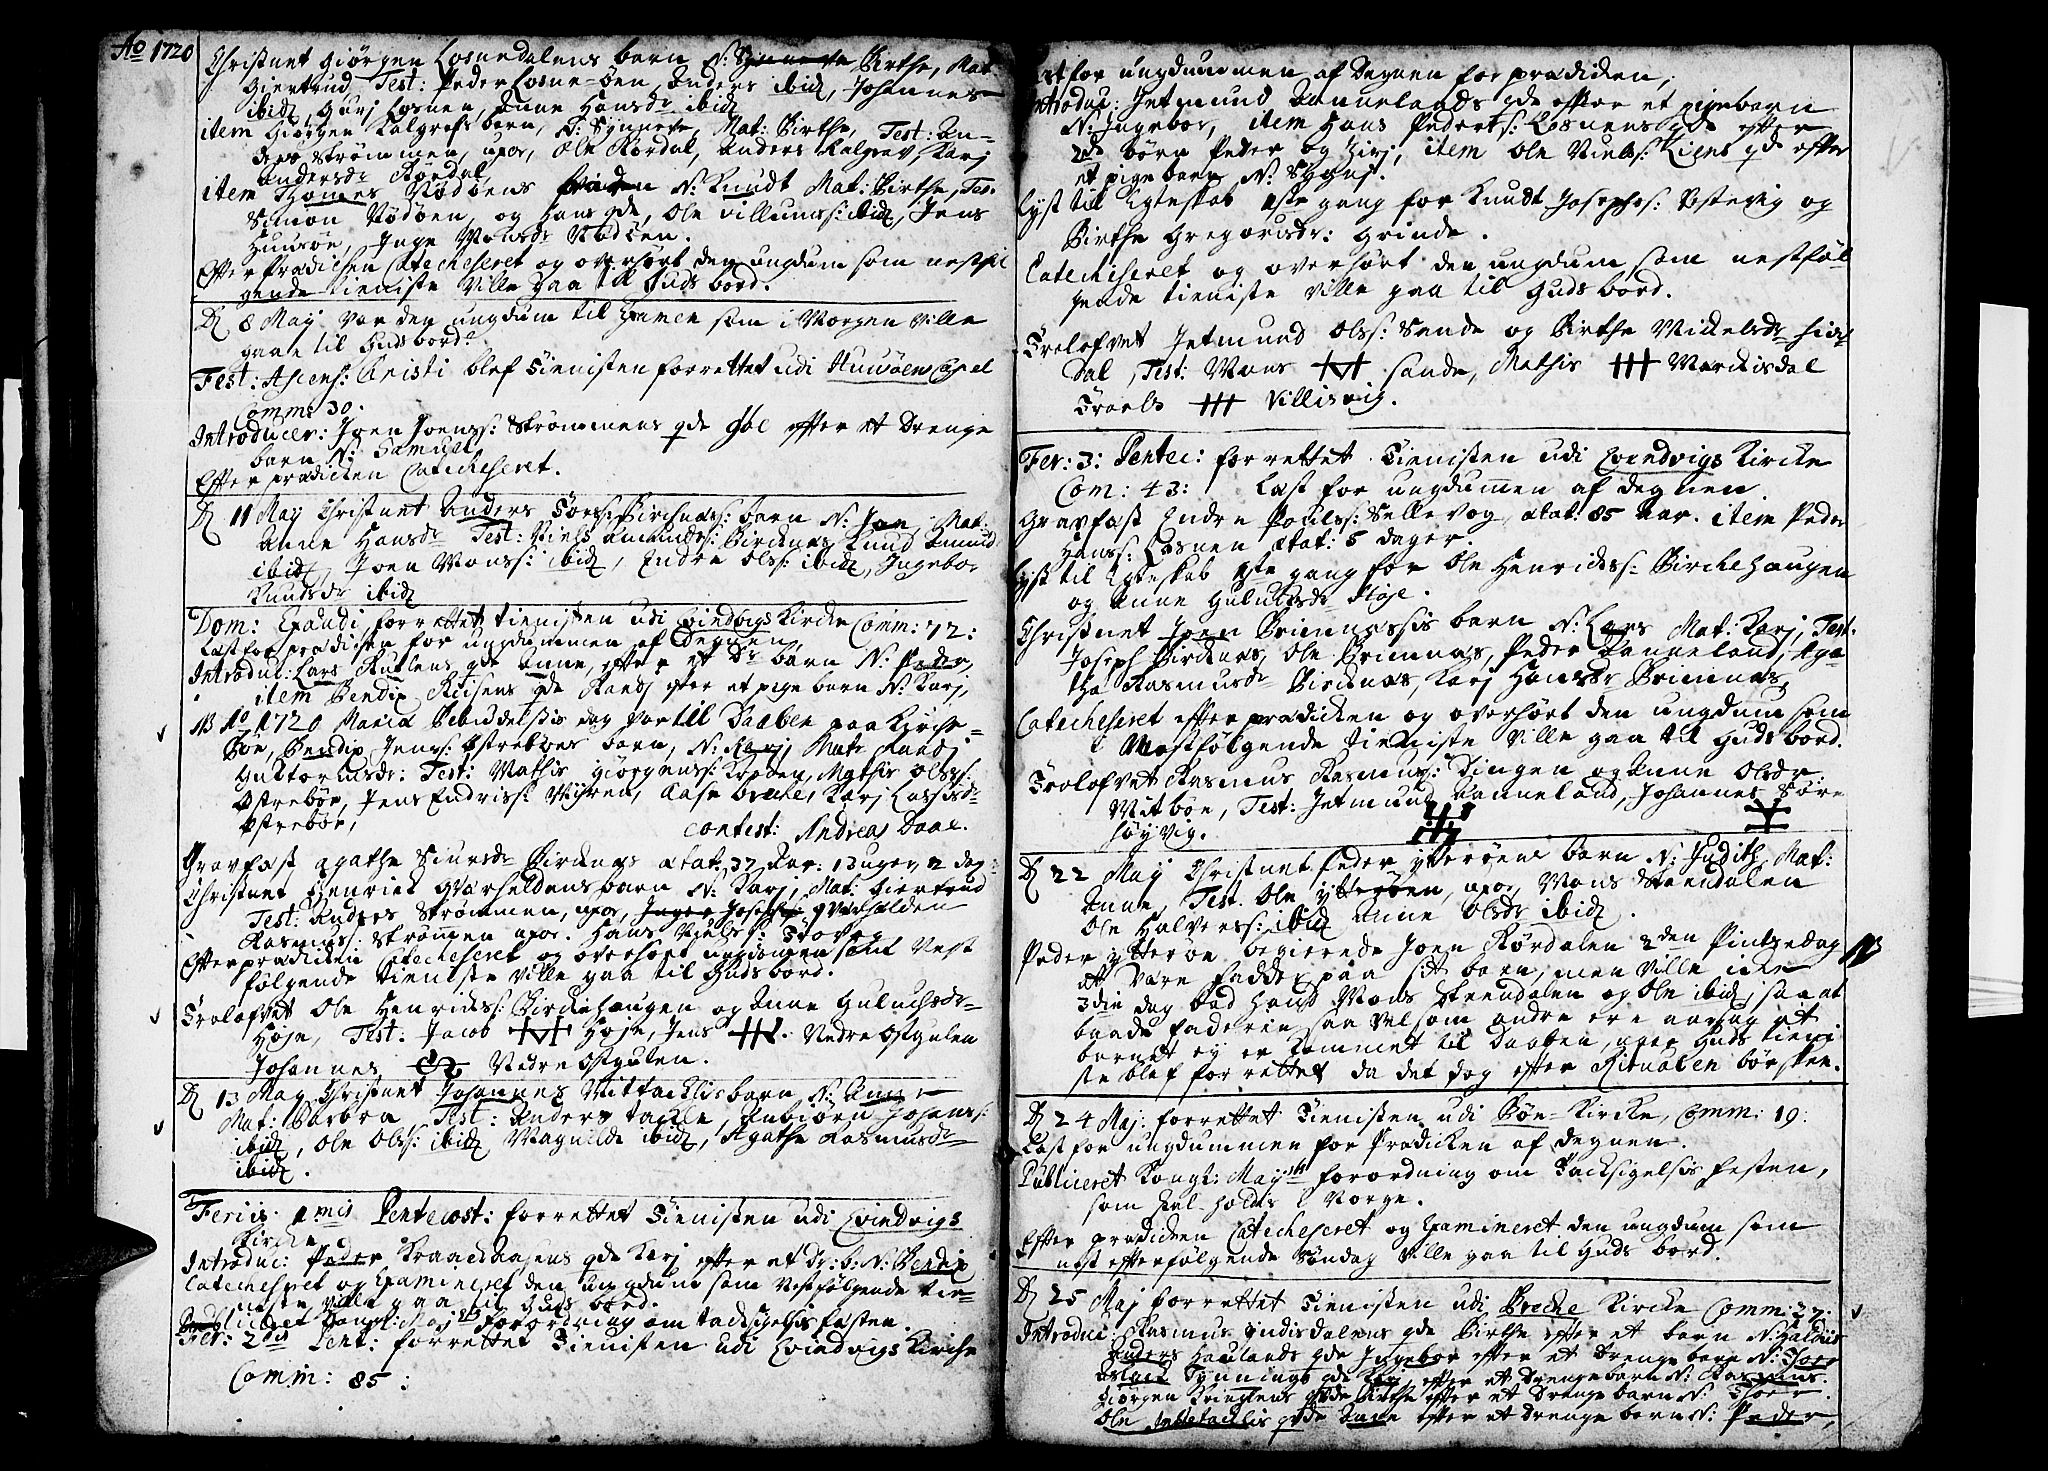 Ao 1720
Christnet Giørgen Losnedalens barn N: Synneve Birthe, Mat:
Giertrud, Test: Peder Losne-Een Anders ibid, Johannes
ibid, Gurj Losnen, Anne Hansdr ibid
item Giørgen Kalgrafs barn, N: Synneve, Mat: Birthe, Test: An-
ders Strømmen, uxor, Ole Rørdal, Anders Kalgrav, Karj
Andersdr Rørdal
item Thomes Nødøens N: Knudt Mat: Birthe, Tes:
Simon Nødøen, og Hans qde, Ole Villumss: ibid, Jens
Husøe, Inge Monsdr Nødøen.
Efter Prædichen Catechiseret og overhørt den ungdum som nestføl
gende tieniste Ville gaa til Guds bord.
D 8 Maij var den ungdum til Examen som i Morgen Ville
gaae til Guds bord.
Fest: Ascens: Christi blef Tienisten forrettet udi Huusøens Capel
Comm: 30.
Introducer: Joen Joenss: Strømmens qde efter et Drenge
barn N: Samuel
Efter prædicken Catechiseret.
D 11 Maij Christnet Anders Torss: Bircknæs: barn N: Joen, Mat:
Anne Hansdr Test: Niels Amunds: Bircknæs Knud Amund
ibid, Joen Monss: ibid, Endre Olss: ibid, Ingebor
Knudsdr ibid
Dom: Exaudi forrettet tienisten udi Evindvigs Kircke Comm: 72:
Læst for prædichen for ungdummen af Degnen
Introdu: Lars Rutlens qde Anne, efter et Dr barn N: Peder,
item Bendix Riisens qde Randj efter et pige barn N: Karj,
NB Ao 1720 Mariæ Bebudelsis dag var til Daaben paa Kirche-
Bøe, Bendix Jenss: Østrebøes barn, N: Karj, Mat: Randj
Guttormsdr: Test: Mathis Giørgenss: Mathis Olss:
Østrebøe, Jens Endriss: Karj Lassisdr
Østrebøe,
contest: Andreas Daae.
Gravfæst Agathe Siursdr Bircknæs ætat: 37 Aar: 13 uger, 2 dag:
Christnet Henrich Qvarheldens barn N: Karj, Mat: Giertrud
Test: Anders Strømmen, uxor, Inger Josephs Qvarhelden
Rasmus: Strømmen uxor. Hans Nielss:
Efter prædiken Catechiseret og overhørt ungdomen som Nest
følgende tieniste Ville gaa til Guds bord.
Trolofvet Ole Henrickss: Birckehaugen og Anne Guluchsdr
Høje, Test: Jacob Høje, Jens Nedre Ostgulen
Johannes Nedre Ostgulen.
D 13 Maij Christnet Johannes Mittacklis barn N: Anne
Mat: Barbra Test: Anders Takle, Anbiørn Johans:
ibid, Ole Olss: ibid Magnilde ibid, Agathe Rasmusdr
ibid.
Feriis 1mis Pentecost: forrettet Tienisten udi Evindvigs
Kircke
Introduc: Peder Kraackaasens qde Karj efter et Dr: b: N: Bendix
Catechiseret og Examineret den ungdum som Nestfølgende tie-
niste Ville gaa til Guds bord.
Publiceret Kongl: Maj: forordning om tacksigelsis festen.
Fer: 2dis Pent: forrettet Tienisten udi Evindvigs Kirche
Comm: 85:
Læst for ungdummen af Degnen for prædicken,
Introduc: Jetmund Annelands qde efter et pigebarn
N: Ingebor, item Hans Peders: Losnens qde efter
2de børn Peder og Sirj, item Ole Nielss: Liens qde efter
et pige barn N: Sygni.
Lyst til Egteskab 1ste gang for Knudt Josephs: Østevig og
Birthe Gregoriisdr: Grinde.
Catechiseret og overhørt den ungdum som nestføl-
gende tieniste Ville gaa til Guds bord.
Trolofvet Jetmund Olss: Sande og Birthe Mickelsdr
dal, Test: Mons Sande, Mathis Merckisdal
Troels Villisvig.
Fer: 3: Pentec: forrettet Tienisten udi Evindvigs Kircke
Com: 43: Læst for ungdumen af degnen.
Gravfæst Endre Poulss: Sellevog, ætat: 85 Aar. item Peder
Hanss: Losnen ætat: 5 dager.
Lyst til Egteskab 1ste gang for Ole Henrickss: Birckehaugen
og Anne Guluksdr Høje.
Christnet Joen Brimnæssis barn N: Lars Mat: Karj, Test:
Joseph Bircknæs, Ole Brimnæs, Peder Anneland, Aga-
tha Rasmusdr Bircknæs, Karj Hansdr Brimnæs,
Catechiseret efter prædicken og overhørt den ungdum som
Nestfølgende tieniste Ville gaa til Guds bord.
Trolofvet Rasmus Rasmuss: Dingen og Anne Olsdr:
Mitbøe, Test: Jetmund Anneland, Johannes Søre
Høyvig.
D 22 Maij Christnet Peder Ytterøens barn N: Judith, Mat:
Anne, Test. Ole Ytterøen, uxor, Mons Steendalen
Ole Halverss: ibid Anne Olsdr ibid.
Peder Ytterøe begierede Joen Rørdalen 2den Pintzedag
at være fadder paa sit barn, men Ville icke
3die dag bad hand Mons Steendalen og Ole ibid, saa at
baade faderen saa vel som andre ere aarsag at
barnet ej er kommet til Daaben, naar Guds tieni
ste blef forrettet da det dog efter Ritualen børskee.
NB
D 24 Maj: forrettet Tienisten udi Bøe-Kircke, Comm: 19:
Læst for ungdummen for Prædicken af degnen.
Publiceret Kongl: Mayts forordning om Tacksigelsis festen,
som skal holdis i Norge.
Efter prædicken Catechiseret og Examineret den ungdum som
nest efterfølgende Søndag Ville gaa til Guds bord.
D 25 Maj forrettet Tienisten udi Brecke Kircke Comm: 27:
Introduc: Rasmus Indisdalens qde Birthe efter et barn N: Haldis
Anders Haulands qde Ingebor efter et Drenge barn N: Thoer
Aslack Tynnings qde Karj, efter et drengebarn N: Rasmus.
Giørgen Kringlens qde Birthe efter et Drenge barn N: Thoer.
Ole qvde Anne efter et drenge barn N: Peder,